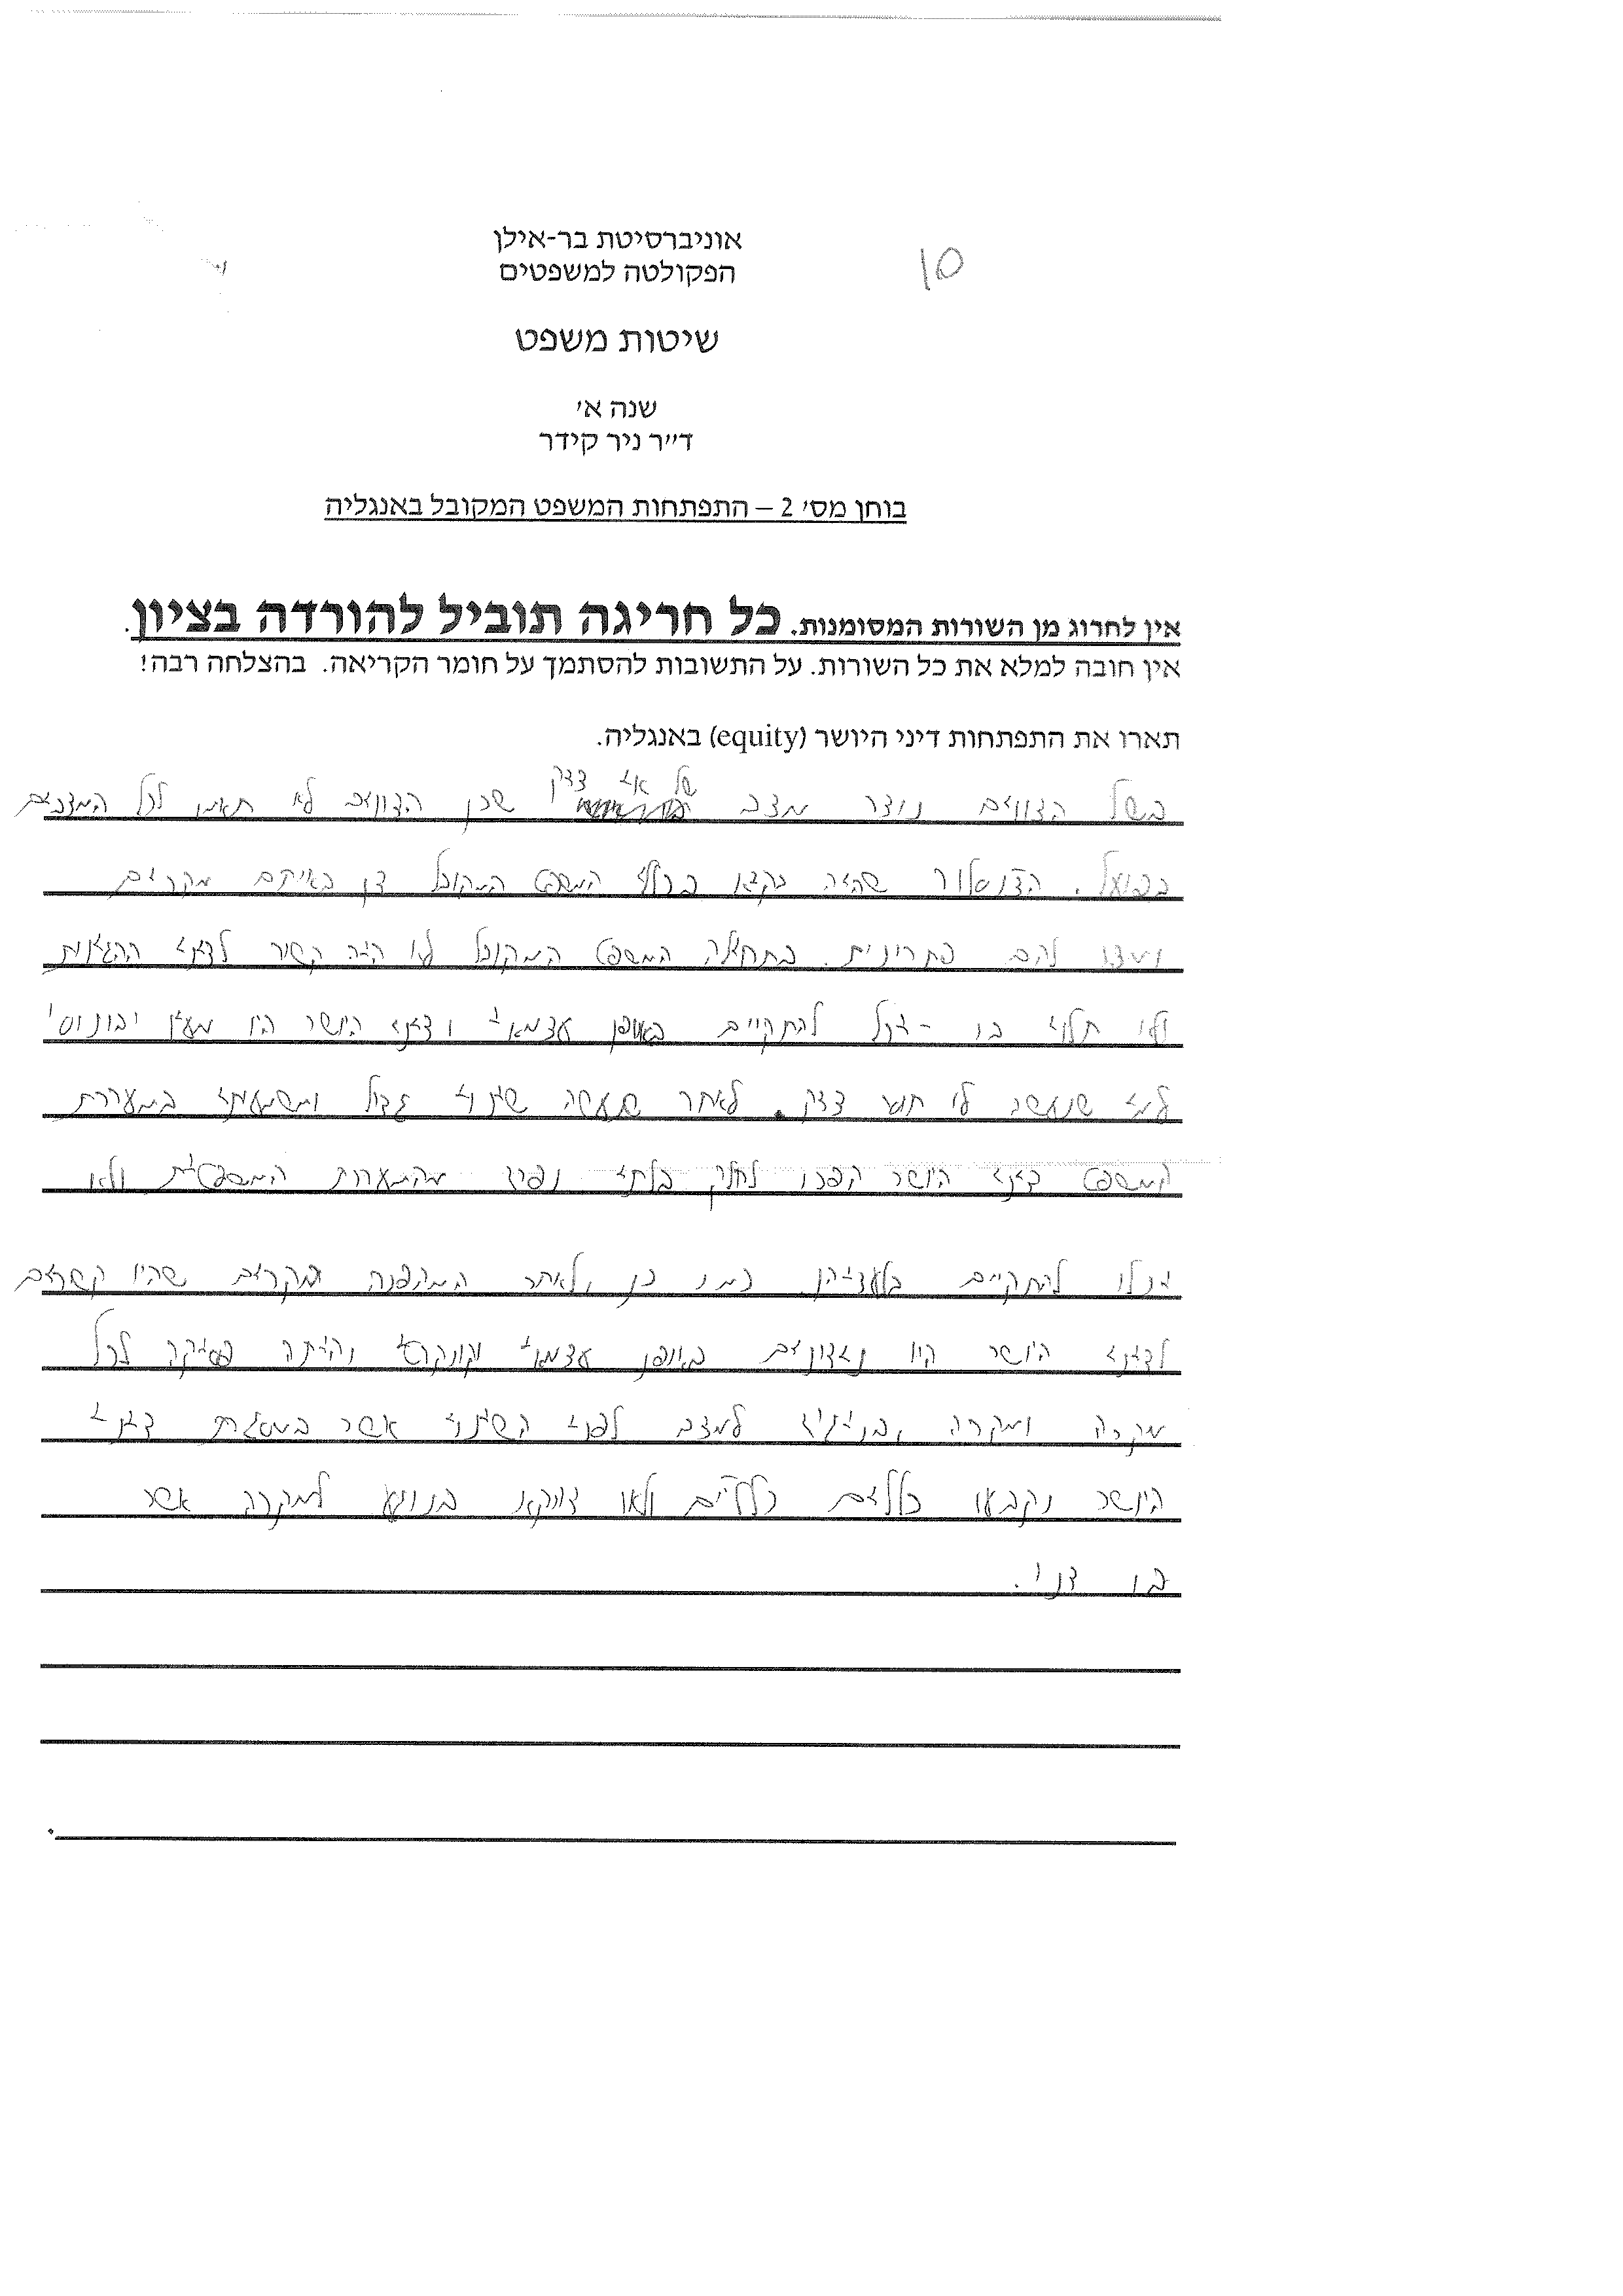 אוניברסיטת בר-אילן
10
הפקולטה למשפטים
שיטות משפט
שנה א'
ד"ר ניר קידר
בוחן מס' 2 – התפתחות המשפט המקובל באנגליה
אין לחרוג מן השורות המסומנות. כל חריגה תוביל להורדה בציון.
אין חובה למלא את כל השורות. על התשובות להסתמך על חומר הקריאה. בהצלחה רבה!
תארו את התפתחות דיני היושר (equity) באנגליה.
של אי צדק
בשל הצווים נוצר מצב שכן הצווים לא תאמו לכל המצבים
בפועל. הצ'נסלור שהיה בקיא בכללי המשפט המקובל דן באותם מקרים
ומצא להם פתרונות. בתחילה המשפט המקובל לא היה קשור לדיני ההגינות
ולא תלוי בו - יכל להתקיים באופן עצמאי ודיני היושר היו מעין 'בונוס'
למי שנעשה לו חוסר צדק. לאחר שנעשה שינוי גדול ומשמעותי במערכת
המשפט דיני היושר הפכו לחלק בלתי נפרד מהמערכת המשפטית ולא
יכלו להתקיים בלעדיהן. כמו כן, לאחר המהפכה מקרים שהיו קשורים
לדיני היושר היו נידונים באופן עצמאי וקונקרטי והיתה פסיקה לכל
מקרה ומקרה, בניגוד למצב לפני השינוי אשר במסגרת דיני
היושר נקבעו כללים כלליים ולאו דווקא בנוגע למקרה אשר
בו דנו.